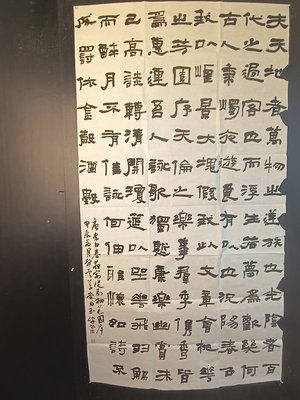 夫天地者萬物之逆旅也光陰者百
代之過客也而浮生若夢為歡幾何
古人秉燭夜遊良有以也況陽春召
我以煙景大塊假我以文章會桃華
之芳園序天倫之樂事群季俊秀皆
為惠連吾人詠歌獨慚康樂幽賞未
已高談轉清開瓊筵以坐華飛羽觴
而醉月不有佳詠何伸雅懷如詩不
成罰依金穀酒數
唐李白春夜宴從弟桃花園序
甲辰